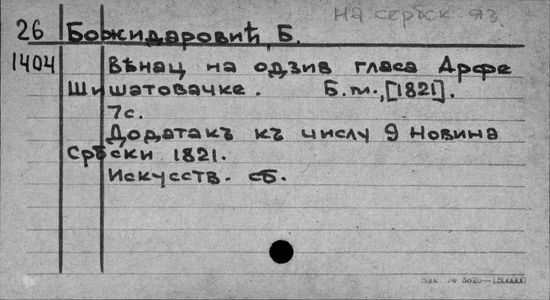 на сербск яз.
26 Божидаровић, Б.
1404 Вѣнац на одзив гласа Арфе
Шишатовачке. Б.m.,[1821].
7с.
Додатакъ къ числу 9 Новина
Србски 1821.
Искусств. сб.
Зак. № 3820—1500000